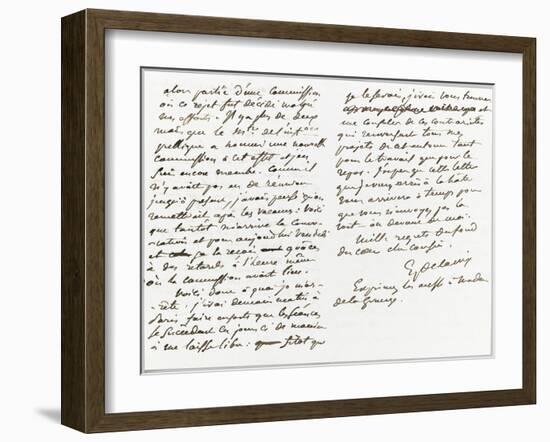 alors partie d'une commission
où ce rejet fut décidé malgré
mes efforts. Il y a plus de deux
mois que le Mtre de l'inst
publique a nommé une nouvelle
commission à cet effet et j'en
suis encore membre. Comme il
n'y avait pas eu de réunion
jusqu'à présent, j'avais pensé qu'on
remettrait après les vacances : voilà
que tantôt m'arrive la convo-
cation et pour aujourd'hui vendredi
et je la reçois grâce
à des retards à l'heure même
où la commission avait lieu.
Voilà donc à quoi je m'ar-
rête : j'irai demain matin à
Paris faire en sorte que les séances
se succèdent ces jours ci de manière
à me laisser libre : sitôt que
je le serai, j'irai vous trouver
et
me consoler de ces contrariétés
qui renversent tous mes
projets de cet automne tant
pour le travail que pour le
repos. J'espère que cette lettre
que j'envoie à la hâte
vous arrivera à temps pour
que vous n'envoyiez pas la
voit. au devant de moi.
Mille regrets du fond
du cœur du cousin.
EugDelacroix
Exprimez les aussi à Madame
de la